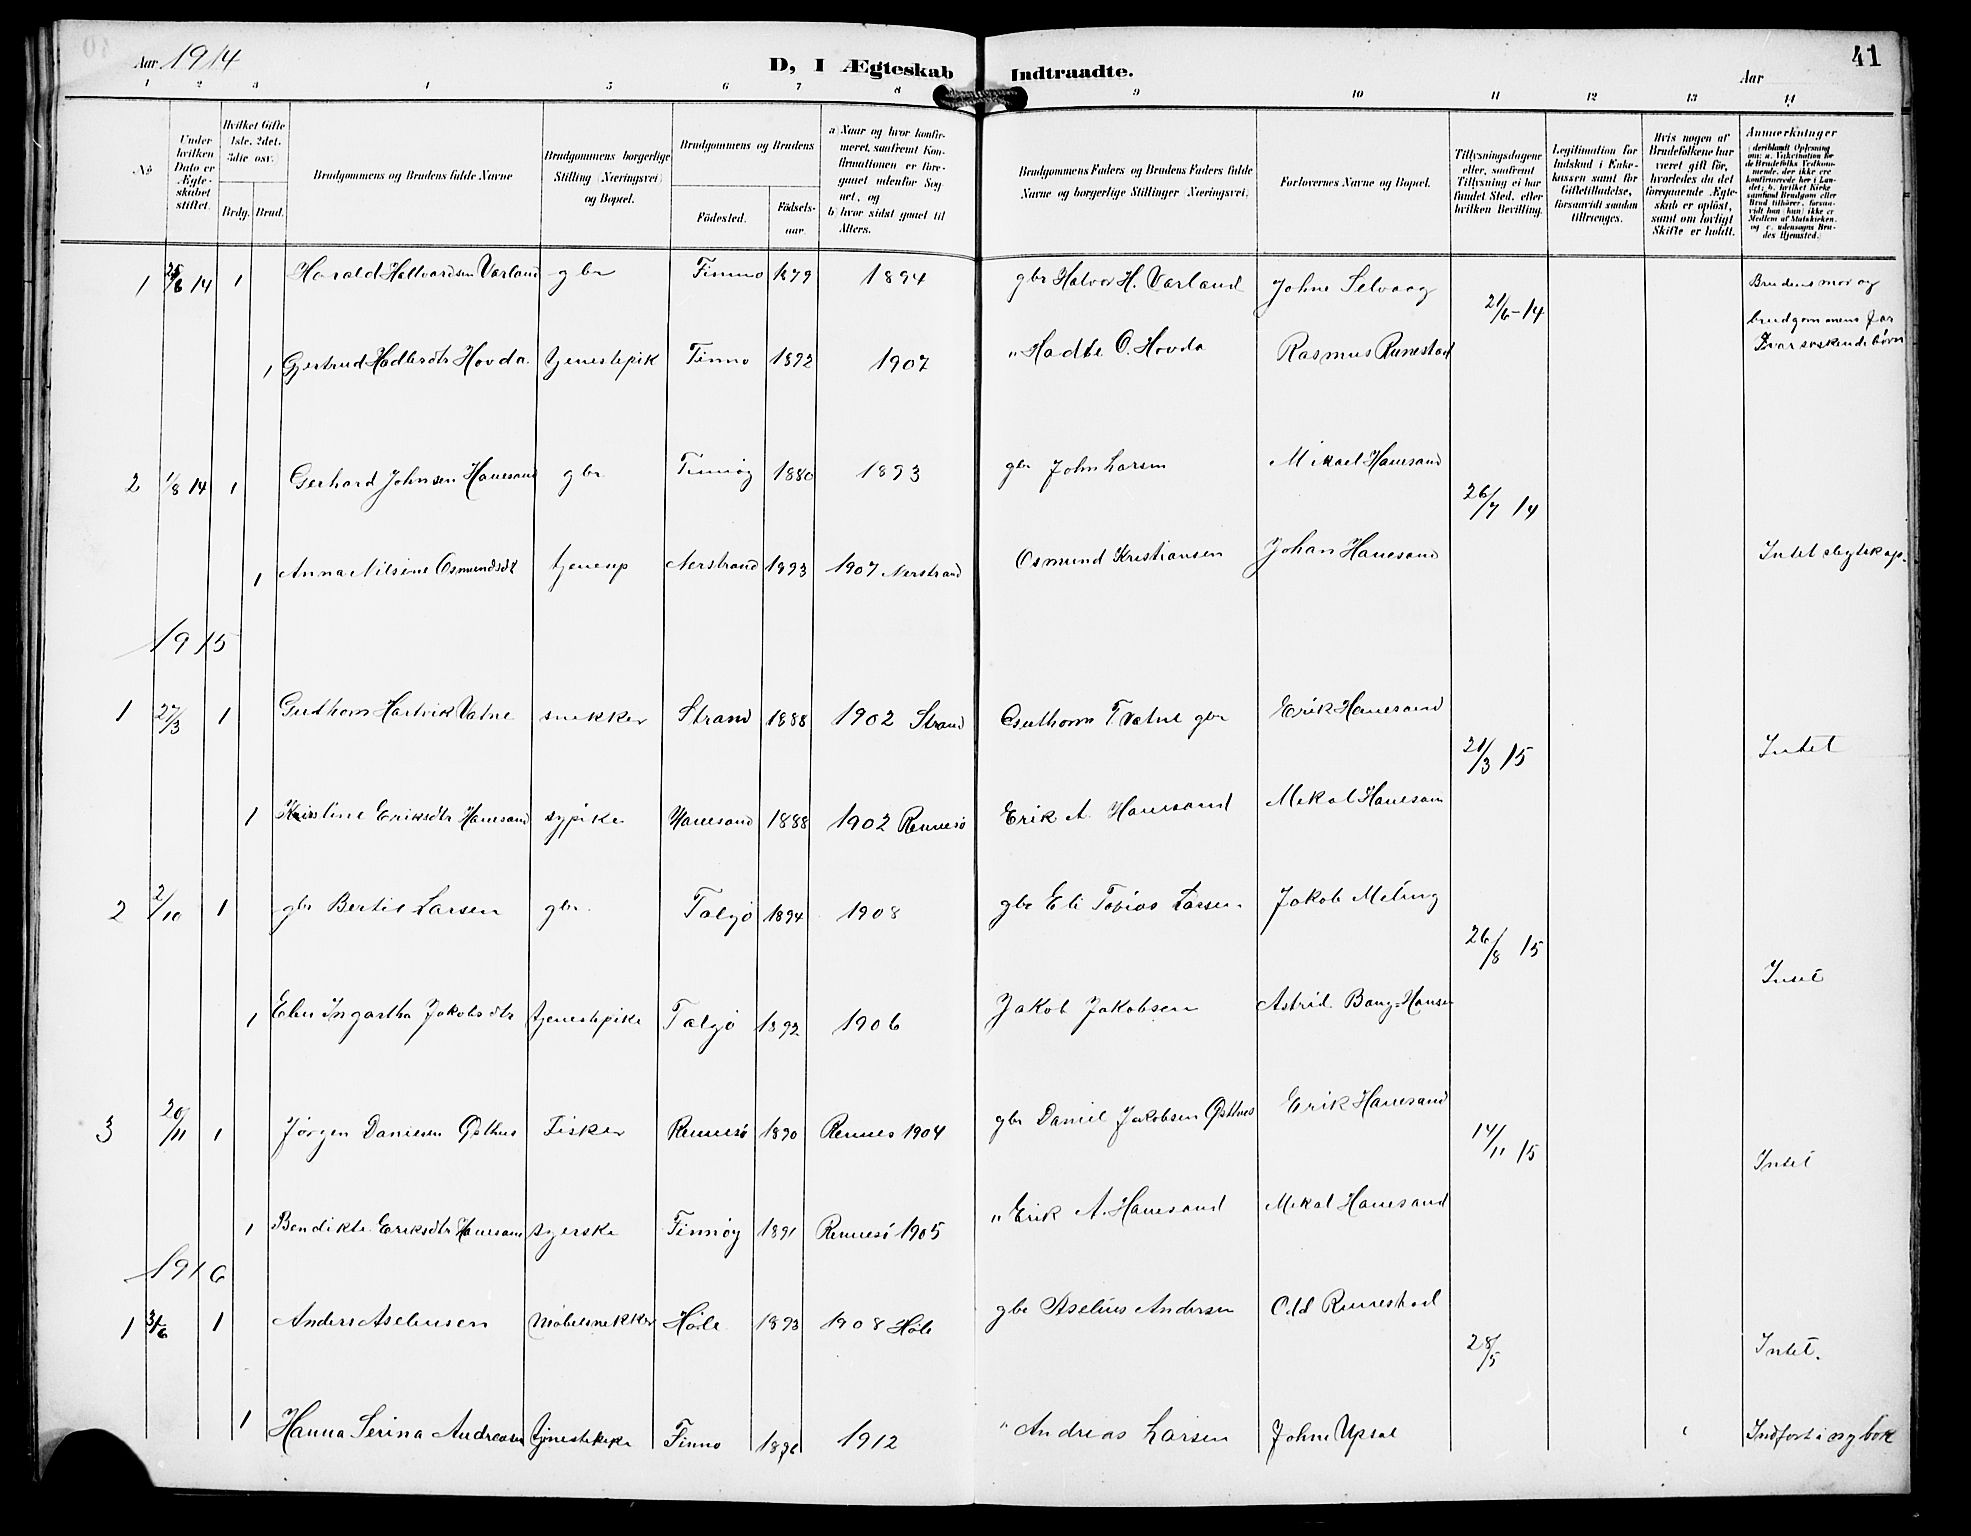 Aar 1914 D, I Ægteskab Indtraadte. Aar 41
1 2 3 4 5 6 7 8 9 10 11 12 13 14
No. Under hvilken Dato er Ægteskabet stiftet. Hvilket Gifte 1ste, 2det, 3die osv. Brdg. Brud. Brudgommens og Brudens fulde Navne Brudgommens borgerlige Stilling (Næringsvei) og Bopæl. Brudgommens og Brudens Fødested. Fødselsaar. a) Naar og hvor konfirmeret, saafremt Konfirmationen er foregaaet udenfor Sognet, og b) hvor sidst gaaet til Alters. Brudgommens Faders og Brudens Faders fulde Navne og borgerlige Stillinger (Næringsvei). Forlovernes Navne og Bopæl. Tillysningsdagene eller, saafremt Tillysning ei har fundet Sted, efter hvilken Bevilling. Legitimation for Indskud i Enkekassen samt for Giftetilladelse, forsaavidt saadan tiltrænges. Hvis nogen af Brudefolkene har været gift før, hvorledes da det foregaaende Ægteskab er opløst, samt om lovligt Skifte er holdt. Anmærkninger (deriblandt Oplysning om: a. Vakcination for de Brudefolks Vedkommende, der ikke ere konfirmerede her i Landet; b. hvilket Kirkesamfund Brudgom eller Brud tilhører, forsaavidt han (hun) ikke er Medlem af Statskirken, og c. udensogns Brudes Hjemsted.)
1 25/6 14 1 Harald Hallvardsen Varland gbr Finnø 1879 1894 gbr Halvor H. Varland Johne Selvaag 21/6-14 Brudens mor og
brudgommens far
1 Gjertrud Hadlesdtr Hovda. tjenestepik Finnø 1892 1907 " Hadle O. Hovda Rasmus Runestad var søskendebørn
2 1/8 14 1 Gerhard Johnsen Hanesand gbr Finnøy 1880 1893 gbr John Larsen Mikael Hanesand
26/7 14
1 Anna Nilsine Osmundsdt tjenep Nerstrand 1893 1907 Nerstrand Osmund Kristiansen Johan Hanesand Intet slegtskap.
1915
1 27/3 1 Gudthorm Hartvik Vatne snekker Strand 1888 1902 Strand Guthorm T Vatne gbr Erik Hanesand
21/3 15 Intet
1 Kristine Eriksdtr Hanesand sypike Hanesand 1888 1902 Rennesø Erik A. Hanesand Mekal Hanesan
2 2/10 1 gbr Bertil Larsen gbr. Talgø 1894 1908 gbr Eli Tobias Larsen Jakob Meling
26/8 15 Intet
1 Ingartha Jakobsdtr tjenestepike Talgø 1892 1906 Jakob Jakobsen Astrid. Bang-Hansen
3 20/11 1 Jørgen Danielsen Østhus Fisker Rennesø 1890 Rennes 1904 gbr Daniel Jakobsen Østhus Erik Hanesand
14/11 15 Intet
1 Bendikte Eriksdtr Hanesan syerske Finnøy 1891 Rennesø 1905 " Erik A. Hanesand Mekal Hanesand
1916
1 3/6 1 Anders Aseliusen Møbelsnekker Høle 1893 1908 Høle gbr Aselius Andersen Odd Runestad
28/5 Intet.
1 Hanna Serina Andreasen tjenestepike Finnø 1896 1912 " Andreas Larsen Johne Upsal Indført i ny bok